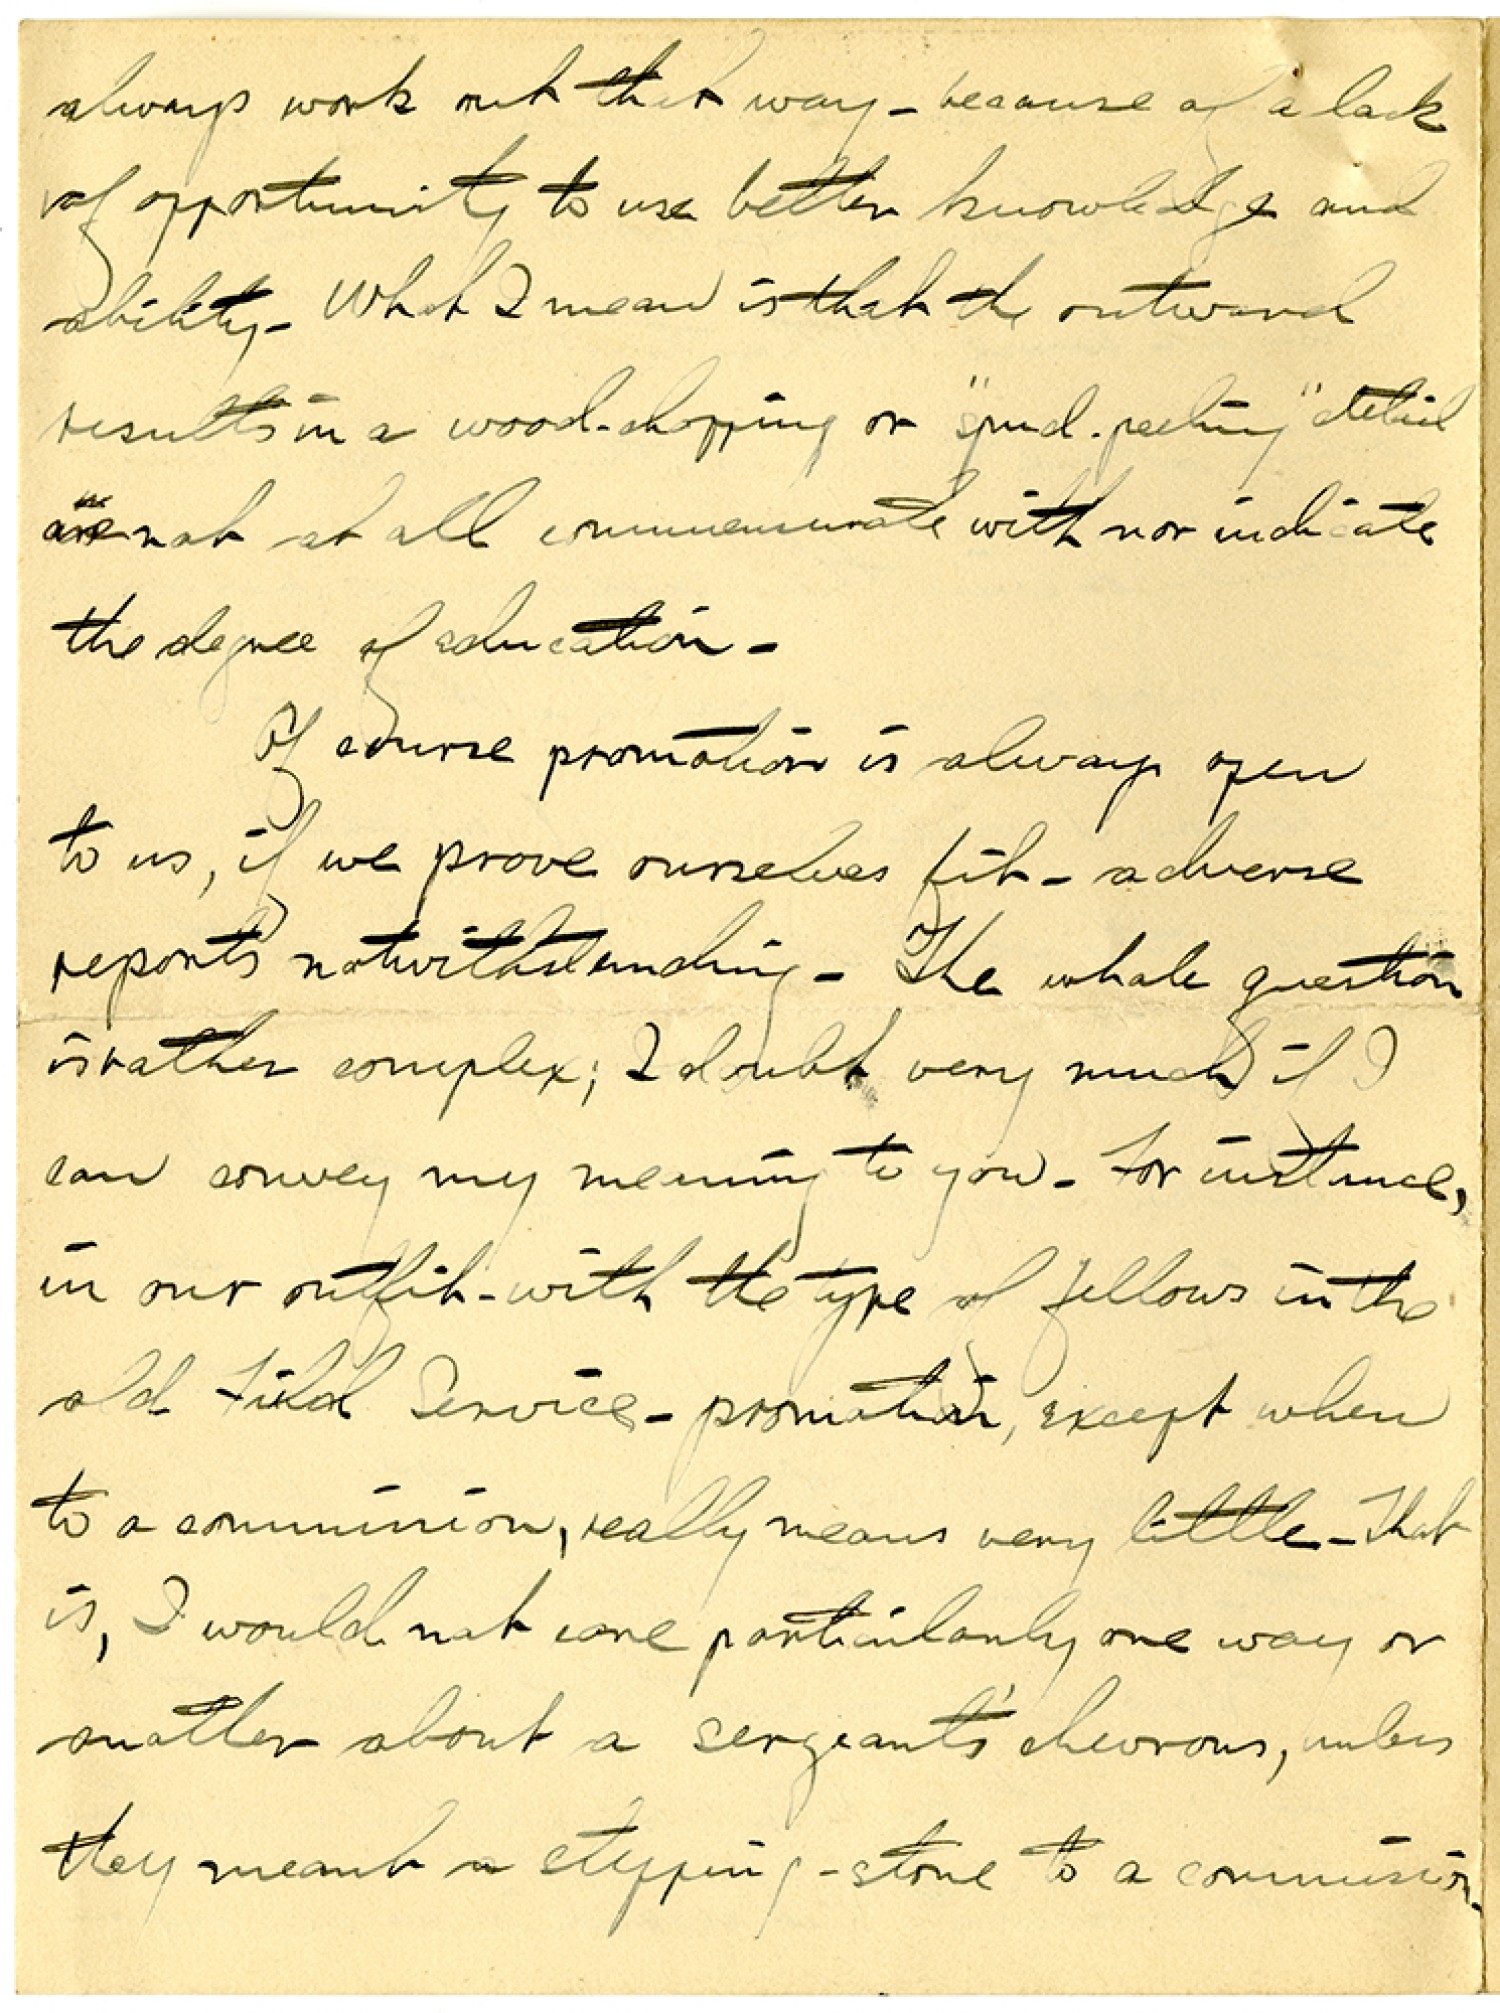 always work out that way - because of a lack
of opportunity to use better knowledge and
ability - What I mean is that the outward
results in a wood-chopping or "spud-peeling" detail
are not at all commensurate with nor indicate
the degree of education -
Of course promotion is always open
to us, if we prove ourselves fit - adverse
reports notwithstanding - The whole question
is rather complex; I doubt very much if I
can convey my meaning to you - For instance,
in our outfit - with the type of fellows in the
old Field Service - promotion, except when
to a commission, really means very little - That
is, I would not care particularly one way or
another about a sergeant's chevrons, unless
they meant a stepping-stone to a commission.